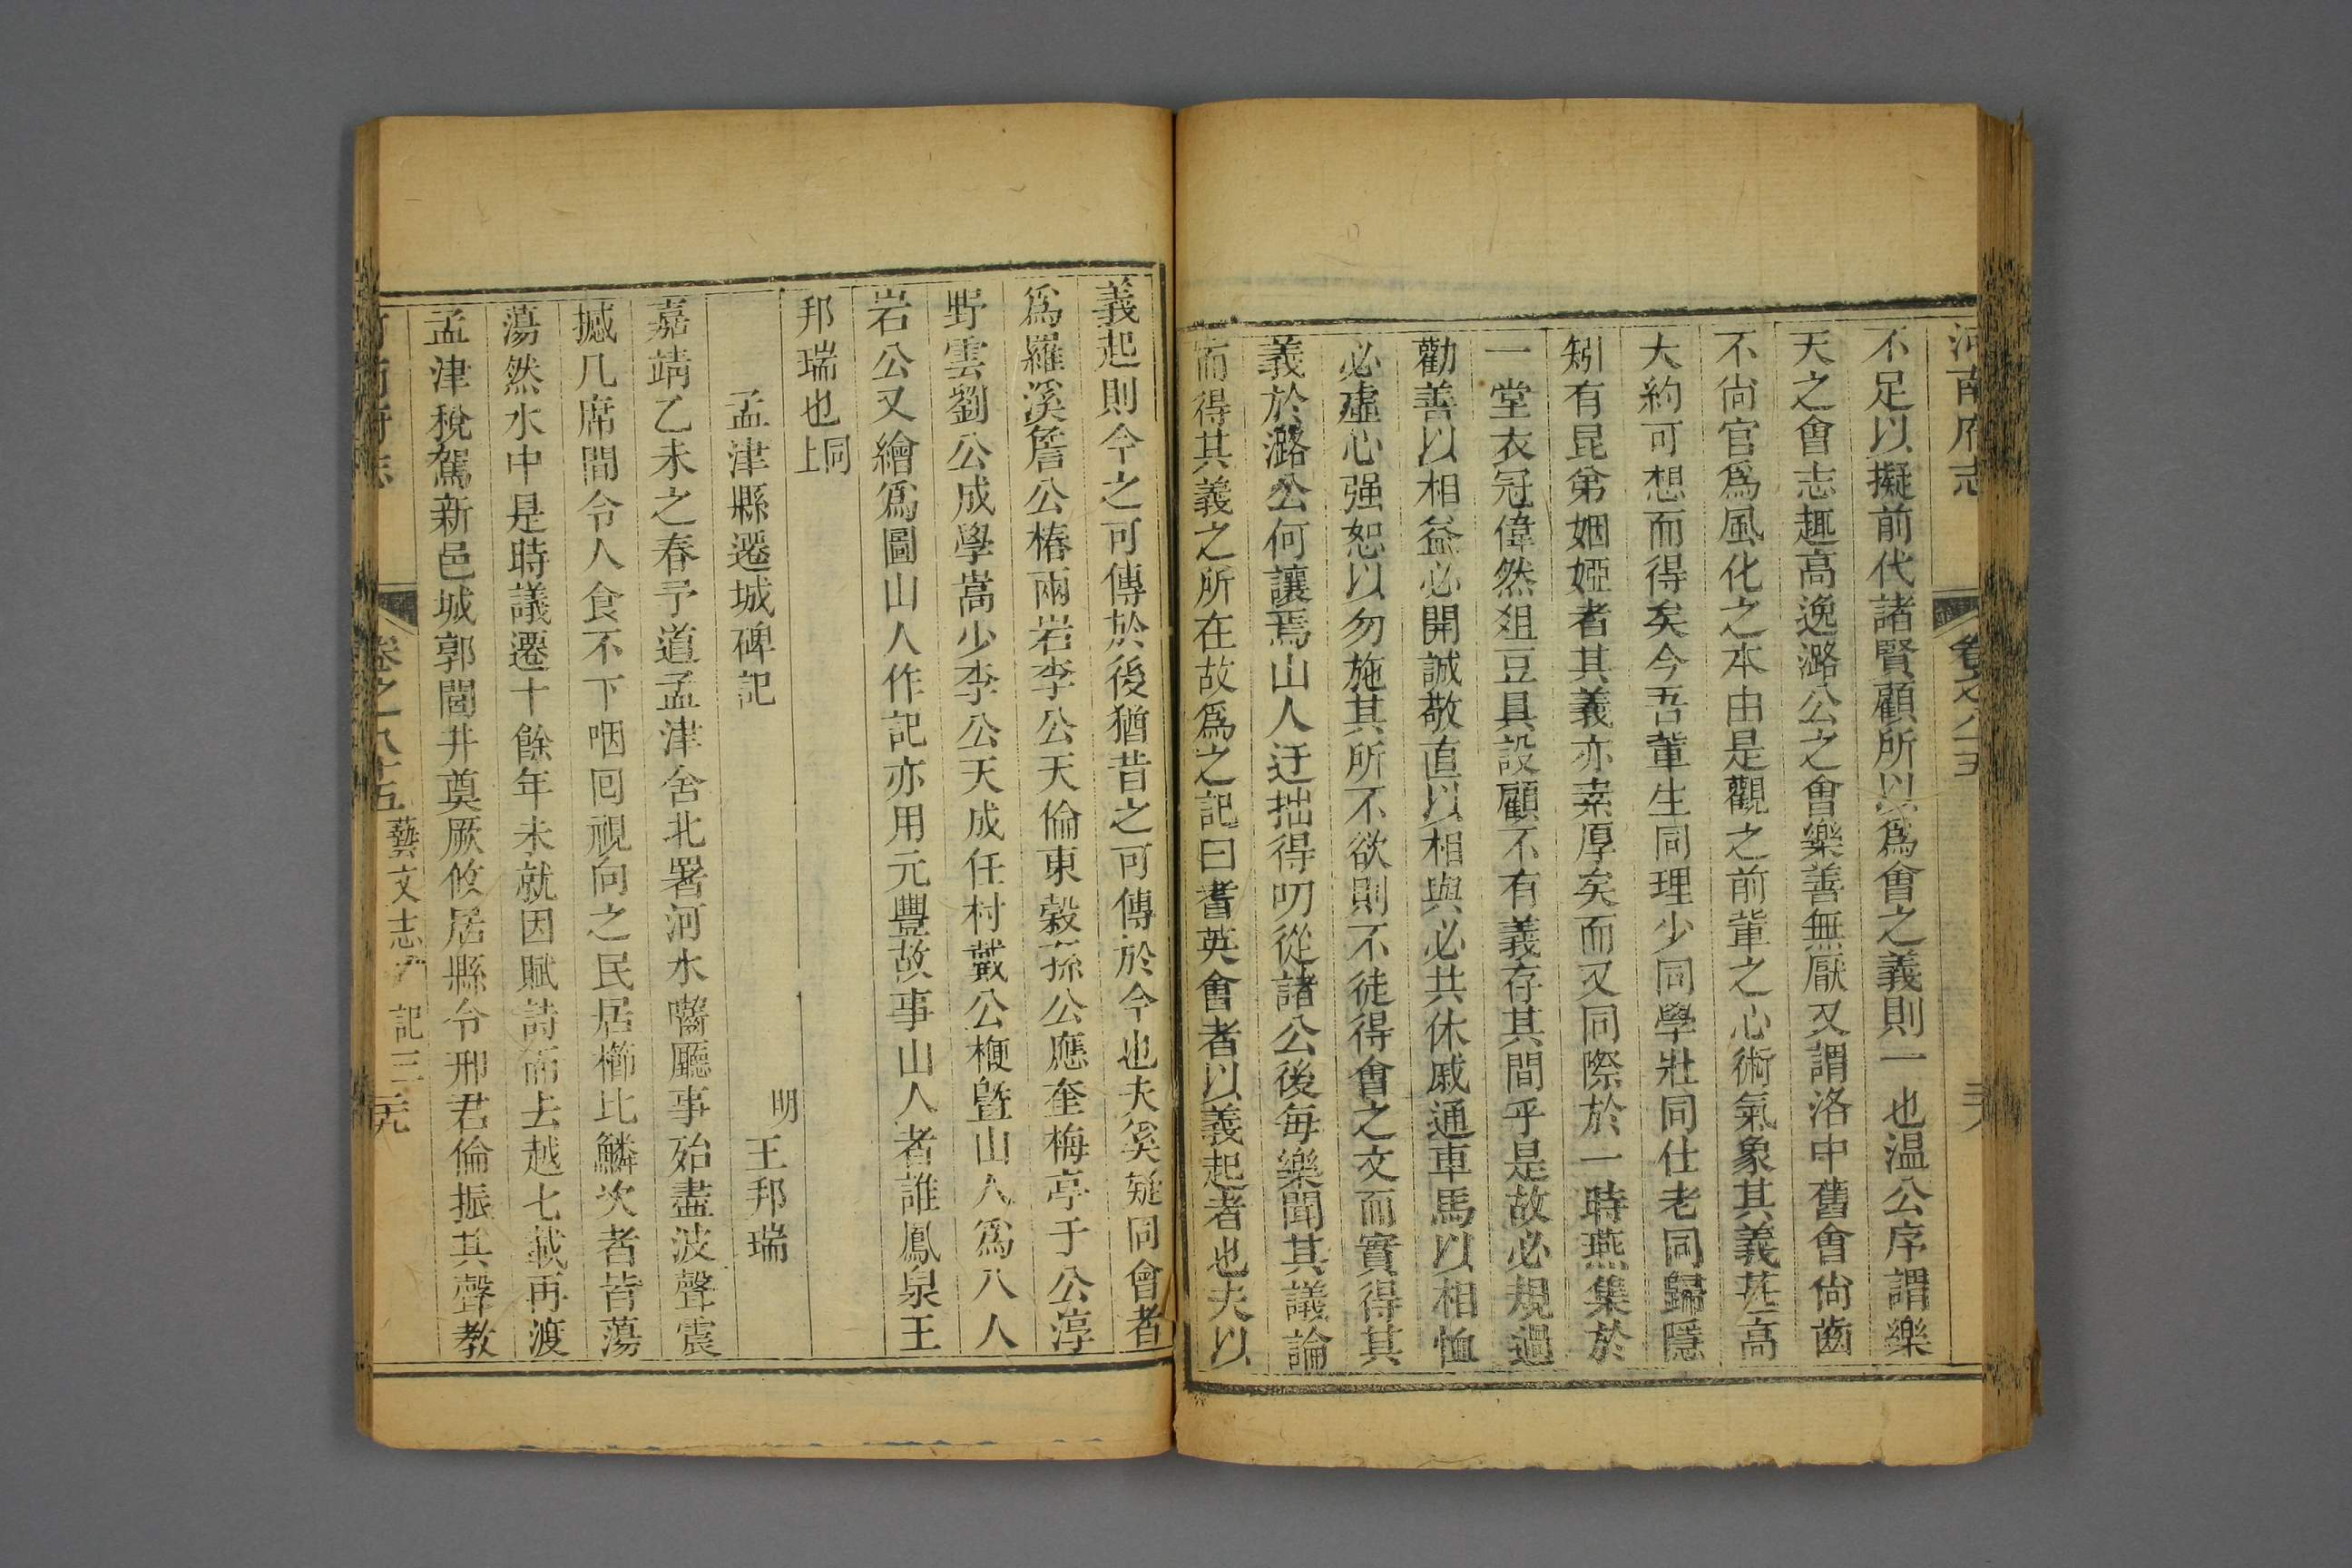 河南府志 卷之八十五
不足以擬前代諸賢顧所以爲會之義則一也温公序謂樂
天之會志趣高逸潞公之會樂善無厭又謂洛中舊會尙齒
不尙官爲風化之本由是觀之前軰之心術氣象其義甚高
大約可想而得矣今吾軰生同理少同學壯同仕老同歸隱
矧有昆弟姻婭者其義亦素厚矣而又同際於一時燕集於
一堂衣冠偉然俎豆具設顧不有義存其間乎是故必規過
勸善以相益必開誠敬直以相與必共休戚通車馬以相恤
必虛心强恕以勿施其所不欲則不徒得會之文而實得其
義於潞公何讓焉山人迂拙得叨從諸公後每樂聞其議論
而得其義之所在故爲之記曰耆英會者以義起者也夫以
義起則今之可傳於後猶昔之可傳於今也夫奚疑同會者
爲羅溪詹公椿兩岩李公天倫東穀孫公應奎梅亭于公淳
野雲劉公成學嵩少李公天成任村戴公楩曁山人爲八人
岩公又繪爲圖山人作記亦用元豐故事山人者誰鳳泉王
邦瑞也同上
孟津縣遷城碑記
明王邦瑞
嘉靖乙未之春予道孟津舍北署河水嚙廳事殆盡波聲震
撼几席間令人食不下咽囘視向之民居櫛比鱗次者皆蕩
蕩然水中是時議遷十餘年未就因賦詩而去越七載再渡
孟津稅駕新邑城郭閭井奠厥攸居縣令邢君倫振其聲教
河南府志 卷之八十五 藝文志 記三